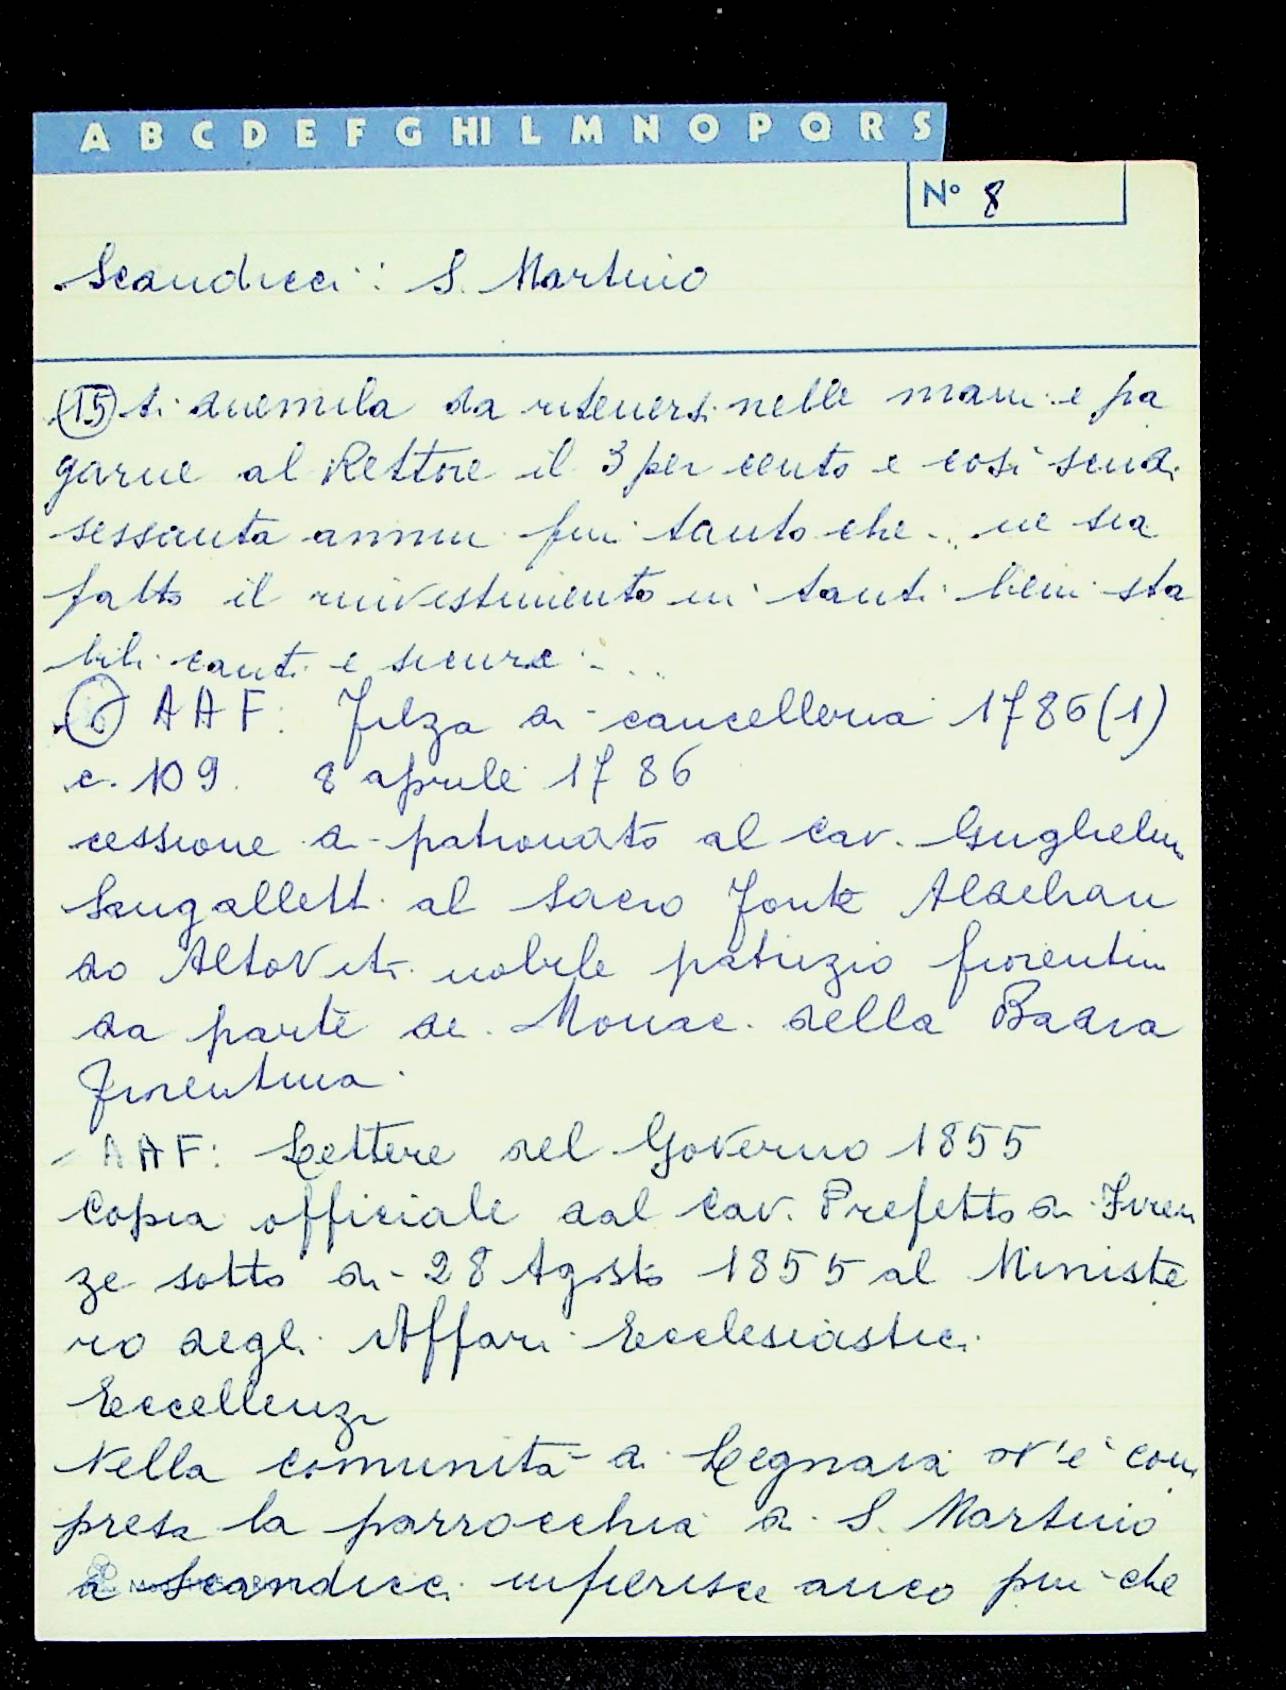 A B C D E F G HI L M N O P Q R S
N° 8
Scandicci: S. Martino
(15) ti duemila da ritenersi nelle mani e pa
garne al Rettore il 3 per cento e così scudi
sessanta annui fin tanto che... ne sia
fatto il rinvestimento in tanti beni sta
bili cauti e sicuri...
AAF: Filza di cancelleria 1786(1)
c. 109. 8 aprile 1786
cessione di patronato al cav. Guglielmo
Sangalletti al Sacro Fonte Aldobran
do Altoviti nobile patrizio fiorentino
da parte dei Monaci della Badia
Fiorentina.
AAF: Lettere del Governo 1855
Copia officiale dal cav. Prefetto di Firen
ze sotto di 28 Agosto 1855 al Ministe
ro degli Affari Ecclesiastici.
Eccellenza
Nella comunità di Legnaia v'è com
presa la parrocchia di S. Martino
a Scandicci inferisce anco più che